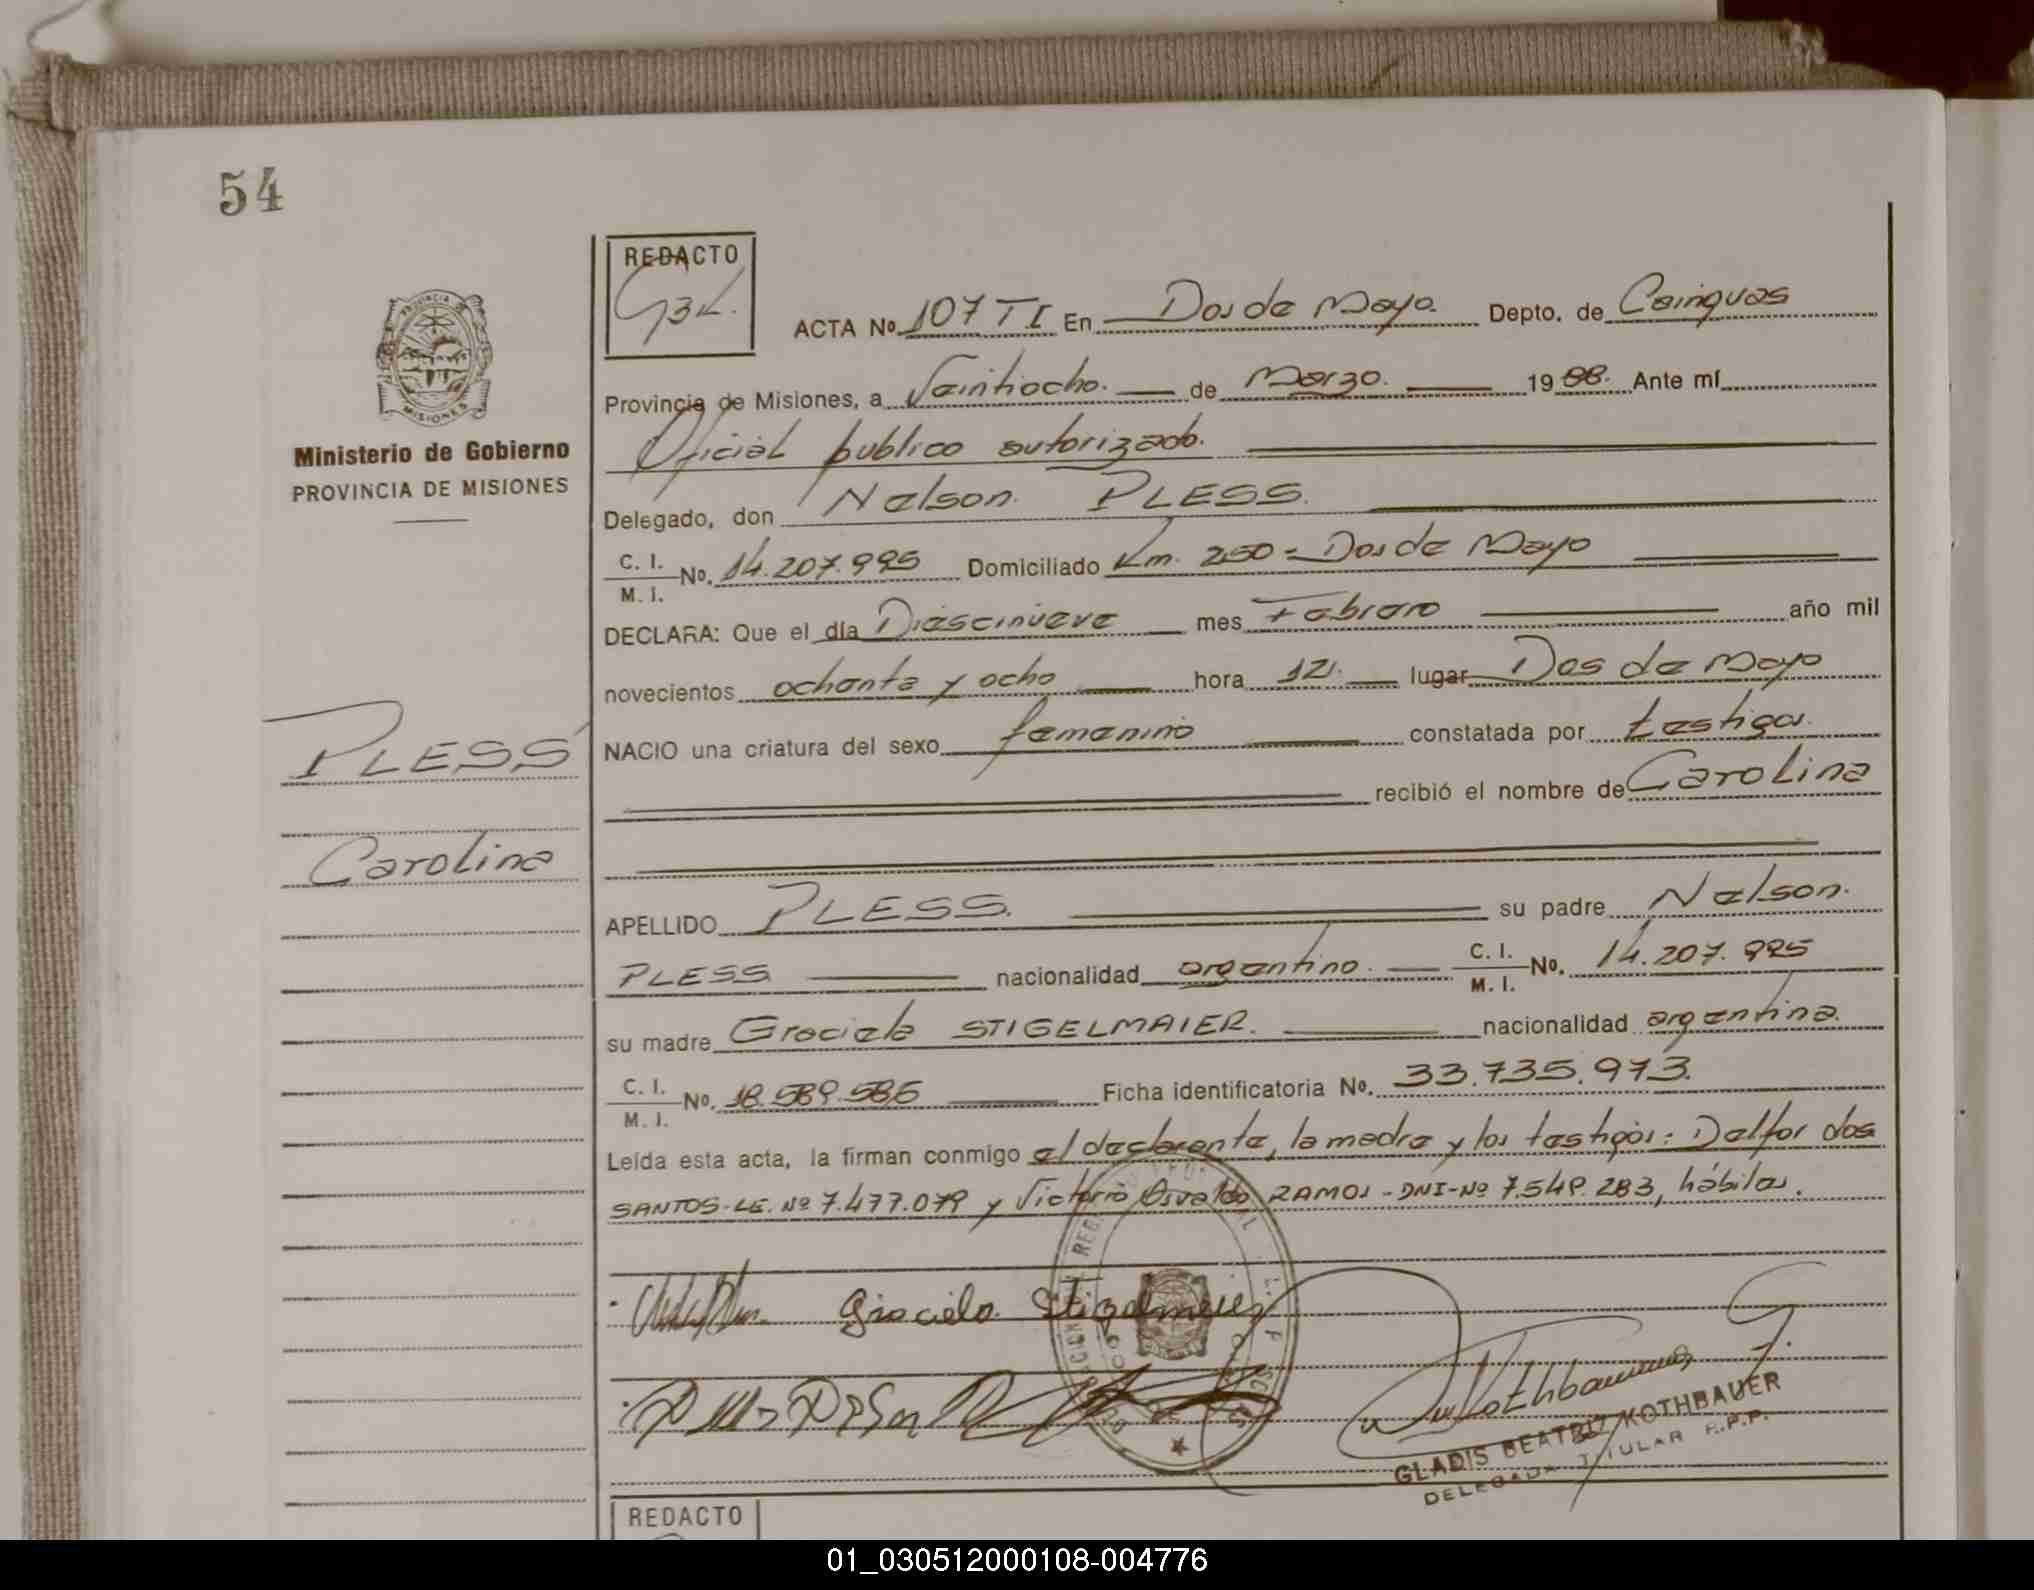 54
REDACTO
ACTA No. 107 T.I En Dos de Mayo. Depto. de Cainguas
Provincia de Misiones, a Veintiocho. de Marzo. 1988. Ante mí
Oficial publico autorizado.
Ministerio de Gobierno
PROVINCIA DE MISIONES
Delegado, don Nelson PLESS.
C. I.
M. I. No. 14.207.995 Domiciliado Km. 250 = Dos de Mayo
DECLARA: Que el día Diescinueve mes Febrero año mil
novecientos ochenta y ocho hora 12. lugar Dos de Mayo
NACIO una criatura del sexo femenino constatada por testigos.
recibió el nombre de Carolina
PLESS
Carolina
APELLIDO PLESS. su padre Nelson.
PLESS nacionalidad argentino. C. I.
M. I. No. 14.207.995
su madre Graciela STIGELMAIER. nacionalidad argentina.
C. I.
M. I. No. 18.589.586 Ficha identificatoria No. 33.735.973.
Leída esta acta, la firman conmigo el declarante, la madre y los testigos: Delfor dos
SANTOS-LE. Nº 7.477.079 y Victorio Osvaldo RAMOS - DNI-Nº 7.549.283, hábiles.
Graciela Stigelmeier
GLADIS BEATRIZ KOTHBAUER
DELEGADA TITULAR R.P.P.
REDACTO
01_030512000108-004776